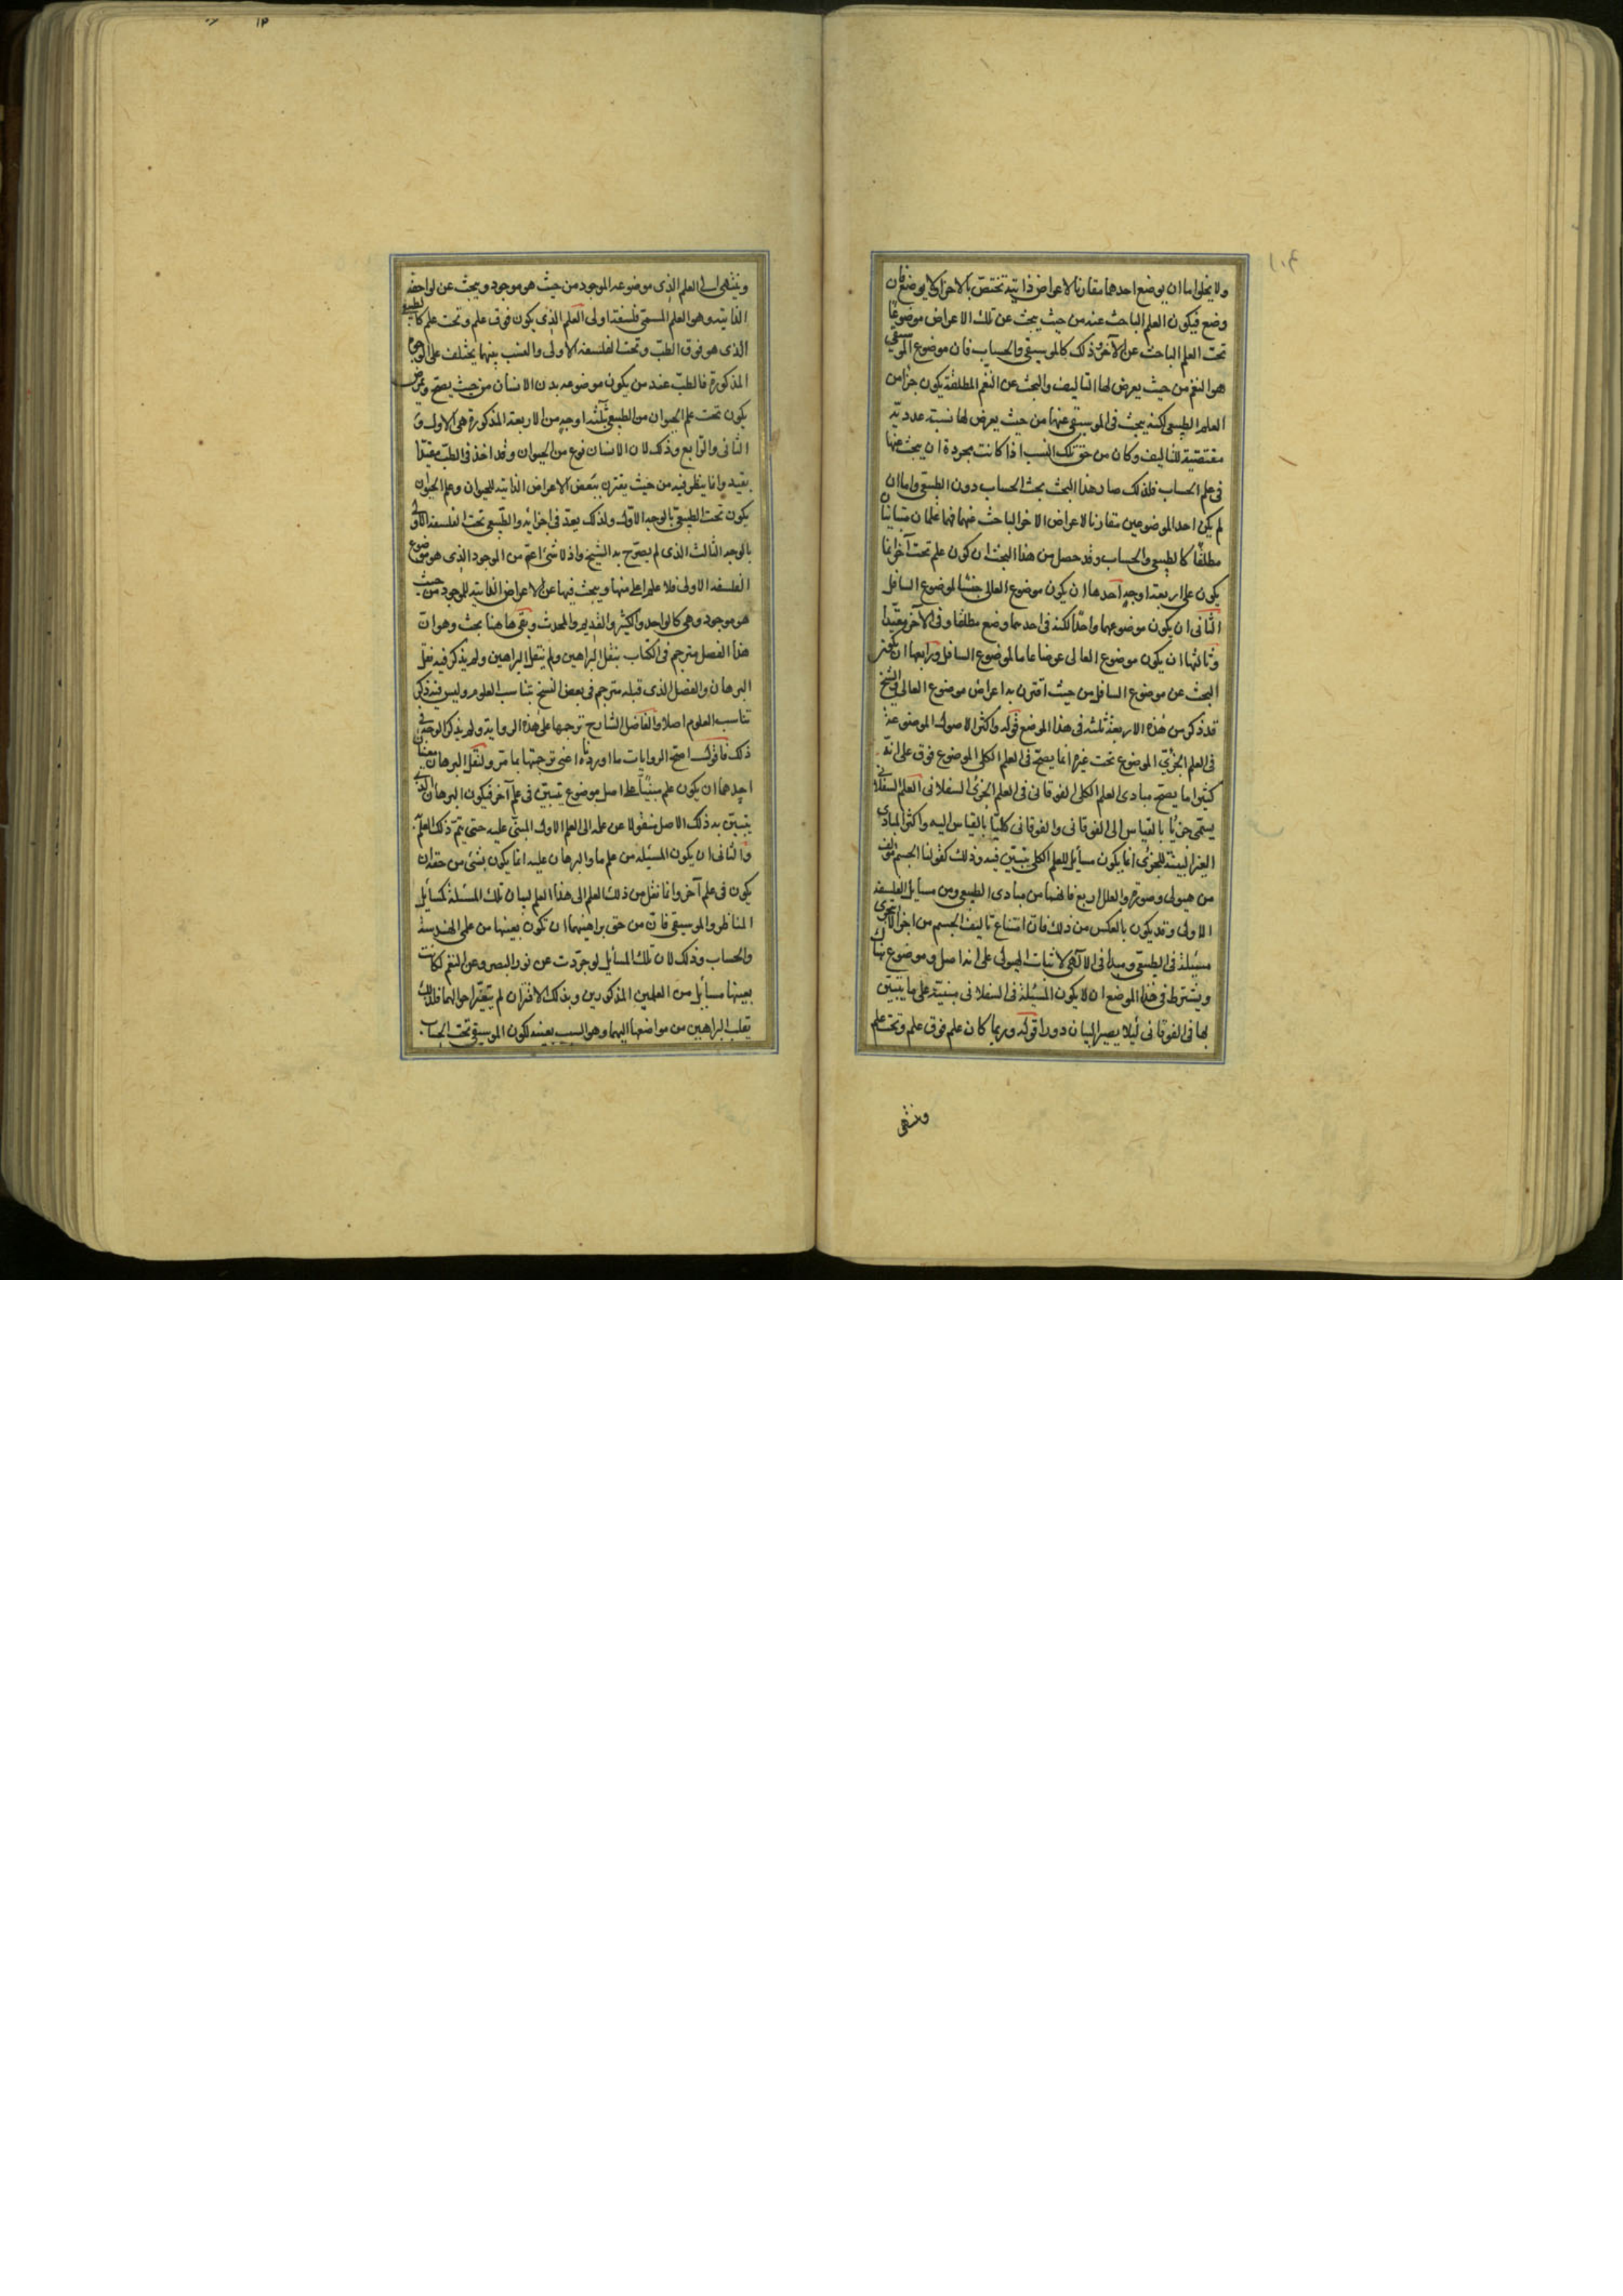 ولا يخلوا ما ان يوضع احدهما مقارنا لاعراض ذاتية تختص بالاخر او لا يوضع فان
وضع فيكون العلم الباحث عنه من حيث يبحث عن تلك الاعراض موضوعا
تحت العلم الباحث عن الآخر وذلك كالموسيقى والحساب فان موضوع الموسيقى
هو النغم من حيث يعرض لها التاليف والبحث عن النغم المطلقة يكون جزا من
العلم الطبيعي لكنه يبحث في الموسيقى عنها من حيث يعرض لها نسبة عددية
مقتضية للتاليف وكان من حق تلك النسب اذا كانت مجردة ان يبحث عنها
في علم الحساب فلذلك صار هذا البحث تحت الحساب دون الطبيعي واما ان
لم يكن احد الموضوعين مقارنا لاعراض الاخر الباحث عنهما فهما علمان متباينان
مطلقا كالطبيعي والحساب وقد حصل من هذا البحث ان كون علم تحت آخر انما
يكون على اربعة اوجه احدها ان يكون موضوع العالى جنسا لموضوع السافل
الثاني ان يكون موضوعهما واحدا لكنه في احدهما وضع مطلقا وفي الآخر مقيدا
وثالثها ان يكون موضوع العالى عرضا عاما لموضوع السافل ورابعها ان يكون
البحث عن موضوع السافل من حيث اقترن به اعراض موضوع العالى والشيخ
قد ذكر من هذه الاربعة ثلثة في هذا الموضع قوله واكثر الاصول الموضوعة
في العلم الجزئي الموضوع تحت غيره انما يصح في العلم الكلى الموضوع فوق على انه
كثيرا ما يصح مبادى العلم الكلى الفوقاني في العلم الجزئي السفلاني العلم السفلاني
يسمى جزئيا بالقياس الى الفوقاني والفوقاني كليا بالقياس اليه واكثر المبادى
الغير البينة للجزئي انما يكون مسايل للعلم الكلى يتبين فيه وذلك كقولنا الجسم مؤلف
من هيولى وصورة والعلل اربع فانهما من مبادى الطبيعي ومن مسايل الفلسفة
الاولى وقد يكون بالعكس من ذلك فان امتناع تاليف الجسم من اجزا لا تتجزى
مسئلة في الطبيعي ومبدا في الآلهى لاثبات الهيولى على انه اصل موضوع هناك
ويشترط في هذا الموضع ان لا يكون المسئلة في السفلاني مبنية على ما يتبين
بها في الفوقاني ليلا يصير البيان دورا قوله وربما كان علم فوق علم وتحت علم
وينتهى
وينتهى الى العلم الذى موضوعه الموجود من حيث هو موجود ويبحث عن لواحقه
الذاتية وهو العلم المسمى فلسفة اولى العلم الذى يكون فوق علم وتحت علم كالطبيعي
الذى هو فوق الطب وتحت الفلسفة الاولى والنسب بينها يختلف على الوجوه
المذكورة فالطب عند من يكون موضوعه بدن الانسان من حيث يصح ويمرض
يكون تحت علم الحيوان من الطبيعي بثلثة اوجه من الاربعة المذكورة هى الاول و
الثاني والرابع وذلك لان الانسان نوع من الحيوان وقد اخذ في الطب مقيدا
بقيد وانما ينظر فيه من حيث يقترن ببعض الاعراض الذاتية للحيوان وعلم الحيوان
يكون تحت الطبيعي بالوجه الاول ولذلك يعد في اجزائه والطبيعي تحت الفلسفة الاولى
بالوجه الثالث الذى لم يصرح به الشيخ واذ لا شئ اعم من الموجود الذى هو موضوع
الفلسفة الاولى فلا علم اعلى منها ويبحث فيها عن الاعراض الذاتية للموجود من حيث
هو موجود وهى كالواحد والكثير والقديم والمحدث وبقى هاهنا بحث وهو ان
هذا الفصل مترجم في الكتاب بنقل البراهين ولم ينقل البراهين ولم يذكر فيه نقل
البرهان والفصل الذى قبله مترجم في بعض النسخ بتناسب العلوم وليس فيه ذكر
تناسب العلوم اصلا والفاضل الشارح ترجمها على هذه الرواية ولم يذكر الوجه في
ذلك فاقول اصح الروايات ما اوردناه اعنى ترجمتها بما مر ولنقل البرهان معنيان
احدهما ان يكون علم مبنيا على اصل موضوع يتبين في علم آخر فيكون البرهان الذى
يتبين به ذلك الاصل منقولا عن علمه الى العلم الاول المبنى عليه حتى يتم ذلك العلم
والثاني ان يكون المسئلة من علم ما والبرهان عليه انما يكون بشئ من حقه ان
يكون في علم آخر وانما نقل من ذلك العلم الى هذا العلم لبيان تلك المسئلة كمسائل
المناظر والموسيقى فان من حق براهينهما ان تكون بعينها من علمى الهندسة
والحساب وذلك لان تلك المسائل لو جردت عن نور البصر وعن النغم لكانت
بعينها مسائل من العلمين المذكورين وبذلك الاقتران لم يتغير احوالهما فلذلك
ينقل البراهين من مواضعها اليهما وهو السبب بعينه لكون الموسيقى تحت الحساب